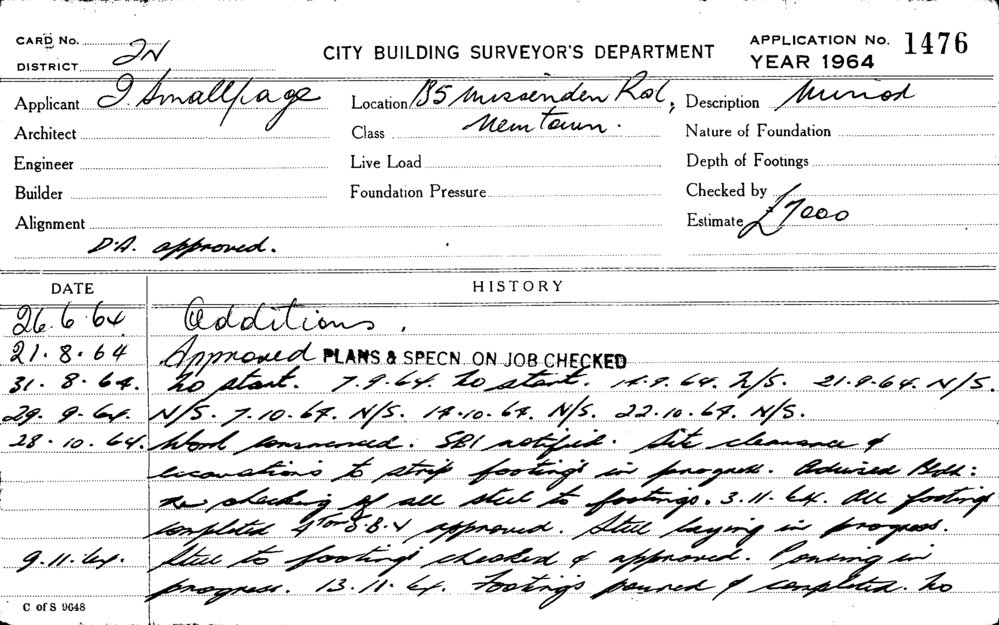 CARD No.
DISTRICT 2N
CITY BUILDING SURVEYOR'S DEPARTMENT
APPLICATION No. 1476
YEAR 1964
Applicant J Smallpage
Location 185 Missenden Rd,
Description Minor
Architect
Class Newtown.
Nature of Foundation
Engineer
Live Load
Depth of Footings
Builder
Foundation Pressure
Checked by
Alignment
Estimate £7000
D.A. approved.
DATE
HISTORY
26.6.64 Additions.
21.8.64 Approved PLANS & SPECN. ON JOB CHECKED
31.8.64. No start. 7.9.64. No start. 14.9.64. N/S. 21.9.64. N/S.
29.9.64. N/S. 7.10.64. N/S. 14.10.64. N/S. 22.10.64. N/S.
28.10.64. Work commenced. SBI notified. Site clearance &
excavations to strip footings in progress. Advised Bldr:
re checking of all steel to footings. 3.11.64. All footings
completed & approved. Steel laying in progress.
9.11.64. Steel to footings checked & approved. Pouring in
progress. 13.11.64. Footings poured & completed. No
C of S 9648